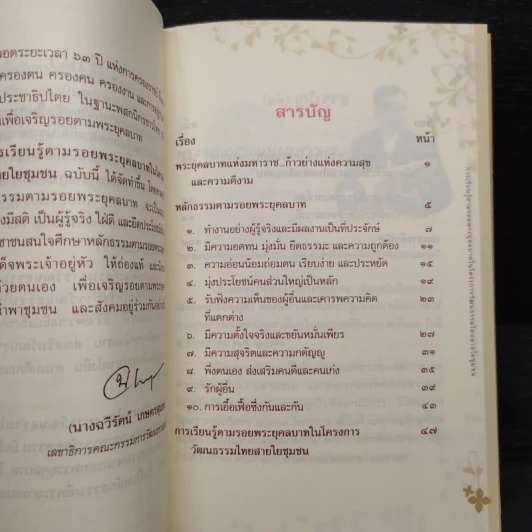 อดระยะเวลา ๖๓ ปี แห่งการครองราชย์
ครองตน ครองคน ครองงาน
ประชาธิปไตย ในฐานะพสกนิกรชาวไทย
เพื่อเจริญรอยตามพระยุคลบาท
รเรียนรู้ตามรอยพระยุคลบาทใน
ายใยชุมชน ฉบับนี้ ได้จัดทำขึ้น โดย
ธรรมตามรอยพระยุคลบาท จะเป็น
มีสติ เป็นผู้รู้จริง ใฝ่ดี และยึดประโยชน์
าชาชนสนใจศึกษาหลักธรรมตามรอยพระยุคล
ด็จพระเจ้าอยู่หัว ให้ถ่องแท้ และ
ด้วยตนเอง เพื่อเจริญรอยตามพระยุค
พาชุมชน และสังคมอยู่ร่วมกันอย่าง
(นางฉวีรัตน์ เกษตรสุนทร
เลขาธิการคณะกรรมการวัฒนธรรม
สารบัญ
เรื่อง หน้า
พระยุคลบาทแห่งมหาราช...ก้าวย่างแห่งความสุข ๑
และความดีงาม
หลักธรรมตามรอยพระยุคลบาท ๕
๑. ทำงานอย่างผู้รู้จริงและมีผลงานเป็นที่ประจักษ์ ๗
๒. มีความอดทน มุ่งมั่น ยึดธรรมะ และความถูกต้อง ๑๑
๓. ความอ่อนน้อมถ่อมตน เรียบง่าย และประหยัด ๑๕
๔. มุ่งประโยชน์คนส่วนใหญ่เป็นหลัก ๑๙
๕. รับฟังความเห็นของผู้อื่นและเคารพความคิด ๒๓
ที่แตกต่าง
๖. มีความตั้งใจจริงและขยันหมั่นเพียร ๒๗
๗. มีความสุจริตและความกตัญญู ๓๑
๘. พึ่งตนเอง ส่งเสริมคนดีและคนเก่ง ๓๕
๙. รักผู้อื่น ๓๙
๑๐. การเอื้อเฟื้อซึ่งกันและกัน ๔๓
การเรียนรู้ตามรอยพระยุคลบาทในโครงการ ๔๗
วัฒนธรรมไทยสายใยชุมชน